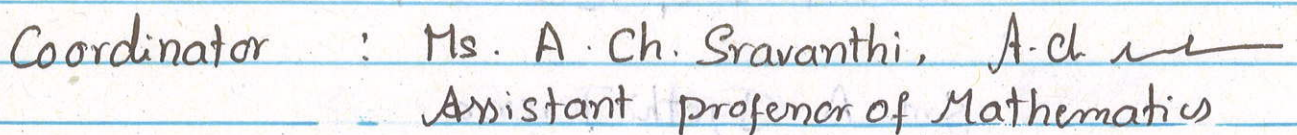 Coordinator : Ms. A. Ch. Sravanthi, A.ch
Assistant professor of Mathematics